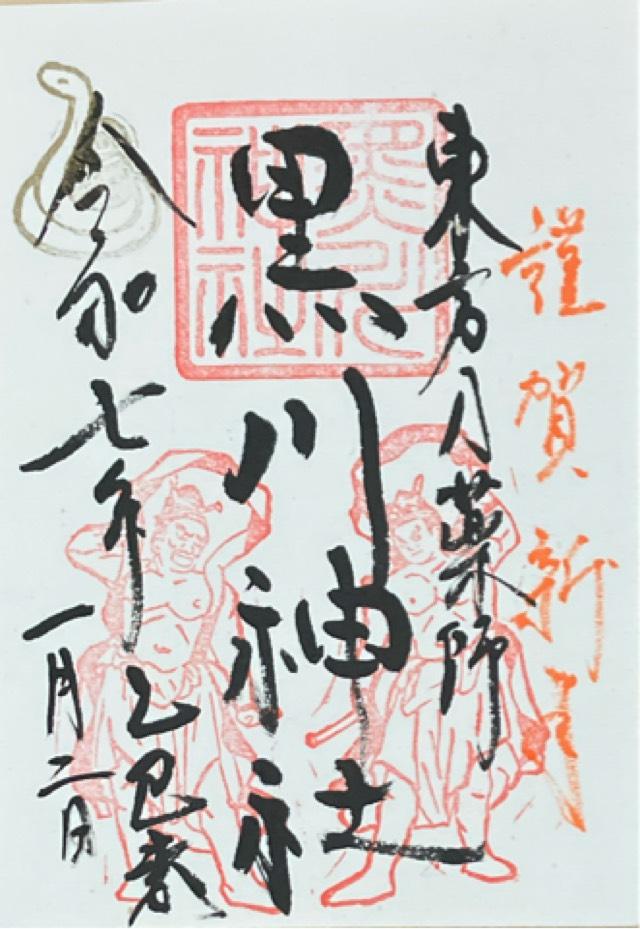 謹賀新年
東方 薬師
黒川神社
黒川神社
令和七年 乙巳
一月二日